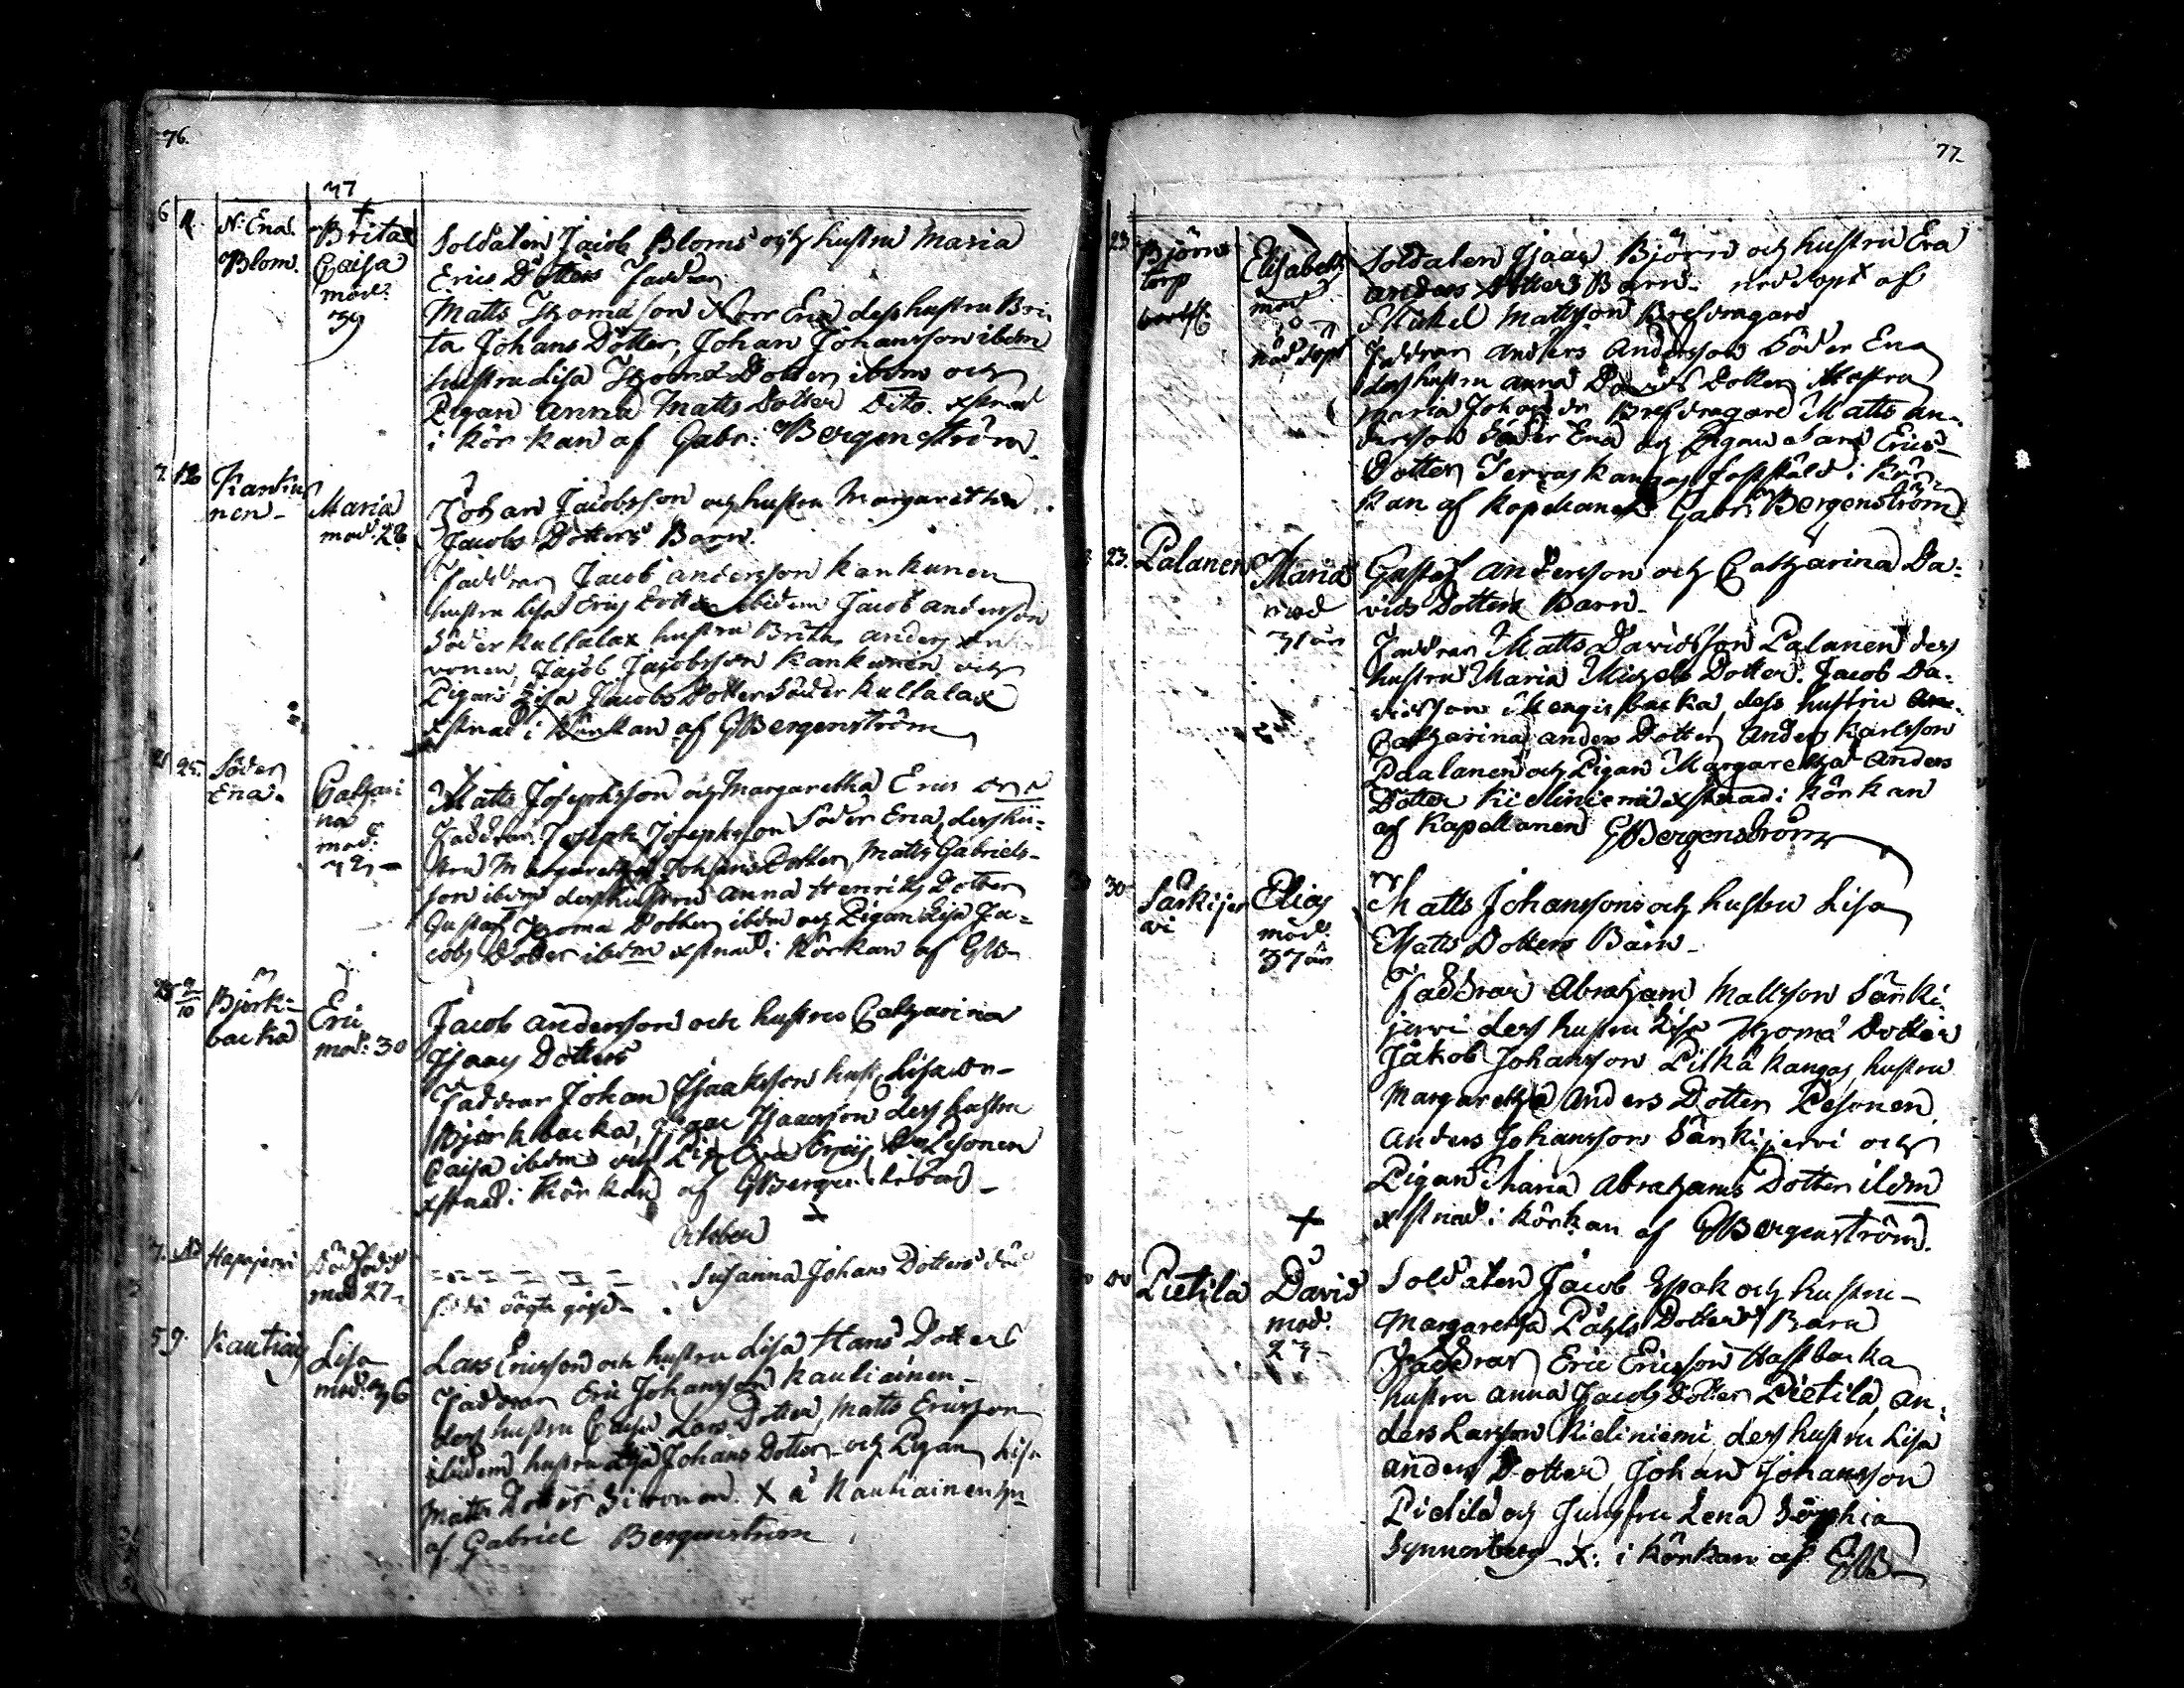 76.
6 11. N: Ena. Blom. Brita Caisa mod: 39
Soldaten Jacob Bloms och hustru Maria
Erics Dotters Faddrar
Matts Thomasson Norr Ena dess hustru Bri
ta Johans Dotter, Johan Johansson ibdm
hustru Lisa Dotter ibdm och
Pigan Anna Matts Dotter Dito. xstnad
i Körkan af Gabr: Bergenström.
7. Kanku nen - Maria mod: 28
Johan Jacobsson och hustru Margaretha
Jacobs Dotters Barn.
Faddrar Jacob Andersson Kankunen
hustru Lisa Erics Dotter ibidem Jacob Andersson
Söderkultalax hustru Brita Anders
Jacob Jacobsson Kankunen och
Pigan Lisa Jacobs Dotter Söderkultalax
xstnad i Körkan af GBergenström
25. Söder Ena. Cathari na mod:
Matts Josephsson och Margaretha Erics
Faddrar Joseph Josephsson Söder Ena, dess hu-
stru Margaretha Johans Dotter, Matts Gabriels-
son ibdm dess hustru Anna Henrichs Dotter
Gustaf Thomae Dotter ibdm och Pigan Lisa Ja=
cobs Dotter ibdm xstnad i Körkan af GB-
28 2/10 Björk= backa Eric mod: 30
Jacob Andersson och hustru Catharina
Isaacs Dotters
Faddrar Johan Isaaksson hust. Lisa
Björkbacka, Isaac Isaacsson dess hustru
Caisa ibdm och Pig. Eva Lesonen
xstnad i Körkan af GBergenström -
October
7. Hapajervi Dödfödd mod 27-
Susanna Johans Dotters
59. Kautiai Lisa mod: 36
Lars Ericsson och hustru Lisa Hans Dotters
Faddrar Eric Johansson Kautiainen -
dess hustru Caisa Lars Dotter, Matts Ericsson
ibidem hustru Johans Dotter och Pigan Lisa
Matts Dotter X å Kautiainen
af Gabriel Bergenström
77.
23. Björns torp Elisabeth mod nöddöpt
Soldaten Isaac Björn och hustru Eva
Anders Dotters Barn. nöddöpt af
Mickel Mattsson Brefdragard
Faddrar Anders Andersson Söder Ena
dess hustru Anna Davids Dotter Hustru
Maria Johans dr Brefdragard Matts An-
dersson Söder Ena och Pigan Erics
Dotter i Kör
kan af Kapellanen Gabr: Bergenström
23. Palanen Maria mod 31 år
Gustaf Andersson och Catharina Da=
vids Dotters Barn.
Faddrar Matts Davidsson Palanen dess
hustru Maria Michels Dotter. Jacob Da-
vidsson backa, dess hustru
Catharina Anders Dotter Anders Karlsson
Paalanen och Pigan Margaretha Anders
Dotter Kieliniemi xstnad i Körkan
af Kapellanen GBergenström
30 Särkijer vi Elias mod: 37 år
Matts Johanssons och hustru Lisa
Matts Dotters Barn -
Faddrar Abraham Mattsson Särki
jervi dess hustru Lisa Thomae Dotter
Jakob Johansson Pitkäkangas hustru
Margaretha Anders Dotter Lesonen
Anders Johansson Särkijervi och
Pigan Maria Abrahams Dotter ibdm
xstnad i Körkan af GBergenström.
Pietilä David mod: 27-
Soldaten Jacob Spak och hustru
Margaretha Påhls Dotters Barn
Faddrar Eric Ericsson Hassbacka
hustru Anna Jacobs Dotter Pietilä, An-
ders Larsson Kieliniemi dess hustru Lisa
Anders Dotter, Johan Johansson
Pietilä och Jungfru Lena Sophia
Synnerberg X: i Körkan af GB-